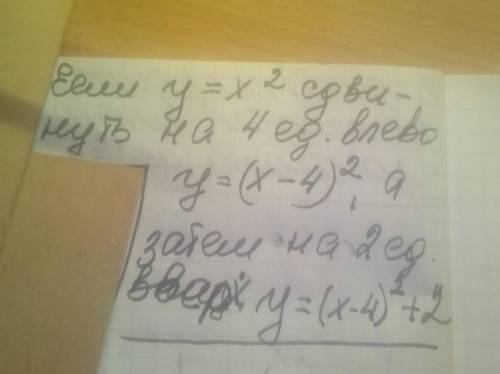 Если y = x² сдви-
нуть на 4 ед. влево
y = (x - 4)², а
затем на 2 ед.
вверх y = (x-4)² + 2